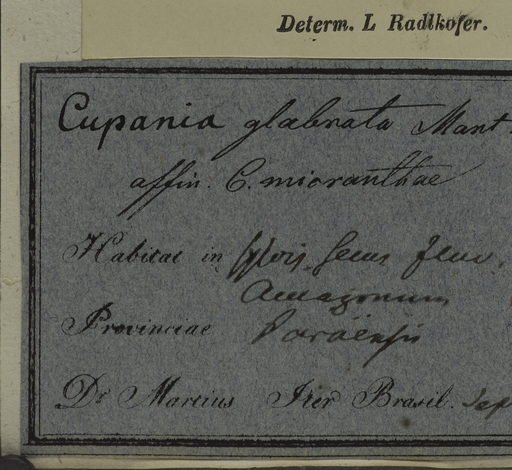 Determ. L Radlkofer.
Cupania glabrata Mart.
affin. C. micranthae
Habitat in sylvis secus fluv.
Amazonum
Provinciae Paraënsis
Dr Martius Iter Brasil. Sep